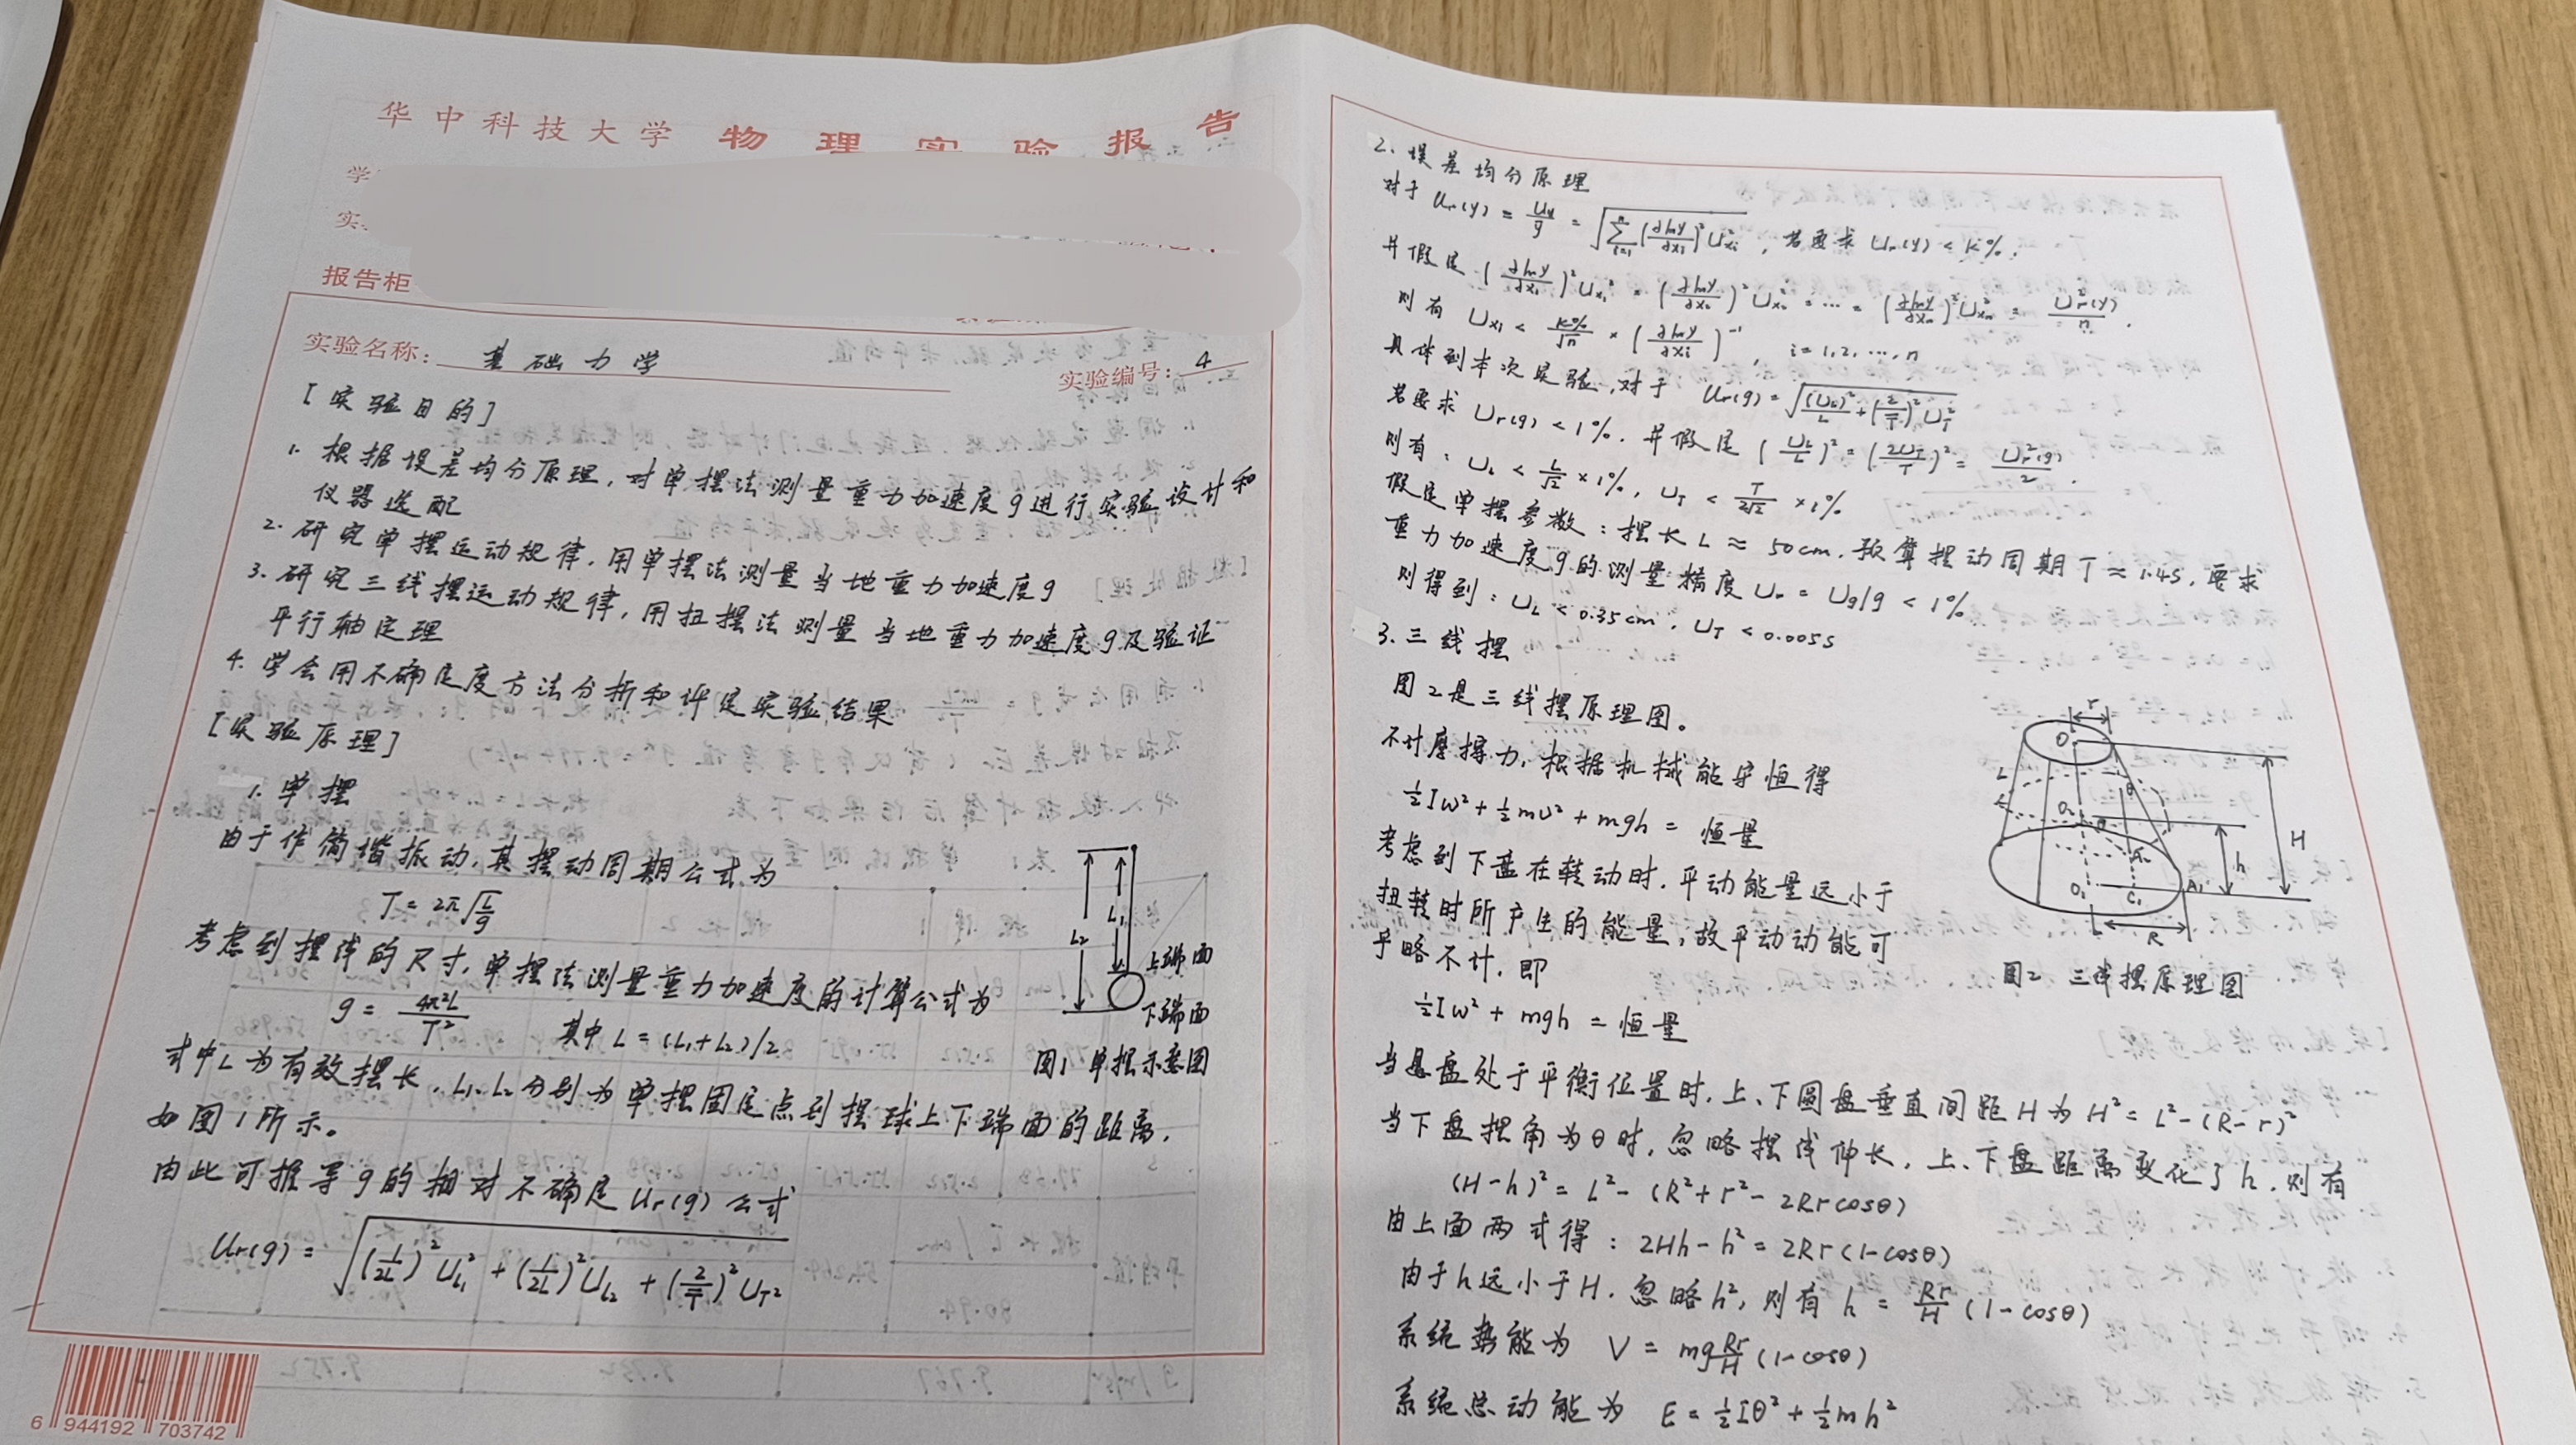 华中科技大学 物理实验报告
学
实
报告柜
实验名称: 基础力学 实验编号: 4
[实验目的]
1. 根据误差均分原理,对单摆法测量重力加速度g进行实验设计和
仪器选配
2. 研究单摆运动规律,用单摆法测量当地重力加速度g
3. 研究三线摆运动规律,用扭摆法测量当地重力加速度g及验证
平行轴定理
4. 学会用不确定度方法分析和评定实验结果
[实验原理]
1. 单摆
由于作简谐振动,其摆动周期公式为
T = 2π√(L/g)
考虑到摆球的尺寸,单摆法测量重力加速度的计算公式为
g = 4π²L/T² 其中 L = (L₁+L₂)/2
式中L为有效摆长,L₁、L₂分别为单摆固定点到摆球上下端面的距离,
如图1所示。
L₂
L₁
上端面
下端面
图1 单摆示意图
由此可推导g的相对不确定Ur(g)公式
Ur(g) = √((1/2L)²U²L₁ + (1/2L)²UL₂ + (2/T)²UT²)
6 944192 703742
2. 误差均分原理
对于 Ur(y) = Uy/y = √(Σⁿᵢ₌₁(∂lny/∂xi)²U²xi), 若要求 Ur(y) < k%,
并假定 (∂lny/∂x₁)²Ux₁² = (∂lny/∂x₂)²Ux₂² = … = (∂lny/∂xn)²U²xn = U²r(y)/n.
则有 Uxi < k%/√n × (∂lny/∂xi)⁻¹, i = 1, 2, …, n
具体到本次实验,对于 Ur(g) = √((UL)²/L + (2/T)²U²T)
若要求 Ur(g) < 1%. 并假定 (UL/L)² = (2UT/T)² = U²r(g)/2.
则有: UL < L/√2 × 1%, UT < T/2√2 × 1%
假定单摆参数:摆长 L ≈ 50cm. 预算摆动周期 T ≈ 1.4s, 要求
重力加速度g的测量精度 Ur = Ug/g < 1%
则得到: UL < 0.35cm, UT < 0.005s
3. 三线摆
图2是三线摆原理图。
不计摩擦力,根据机械能守恒得
½Iω² + ½mυ² + mgh = 恒量
考虑到下盘在转动时,平动能量远小于
扭转时所产生的能量,故平动动能可
乎略不计,即
½Iω² + mgh = 恒量
r
O
L
θ
O₂
H
h
A
O₁
C₁
A₁
R
图2 三线摆原理图
当悬盘处于平衡位置时,上、下圆盘垂直间距H为 H² = L² - (R-r)²
当下盘摆角为θ时,忽略摆线伸长,上、下盘距离变化了h,则有
(H-h)² = L² - (R²+r²-2Rrcosθ)
由上面两式得: 2Hh - h² = 2Rr(1-cosθ)
由于h远小于H,忽略h²,则有 h = Rr/H (1-cosθ)
系统势能为 V = mg Rr/H (1-cosθ)
系统总动能为 E = ½Iθ² + ½mh²